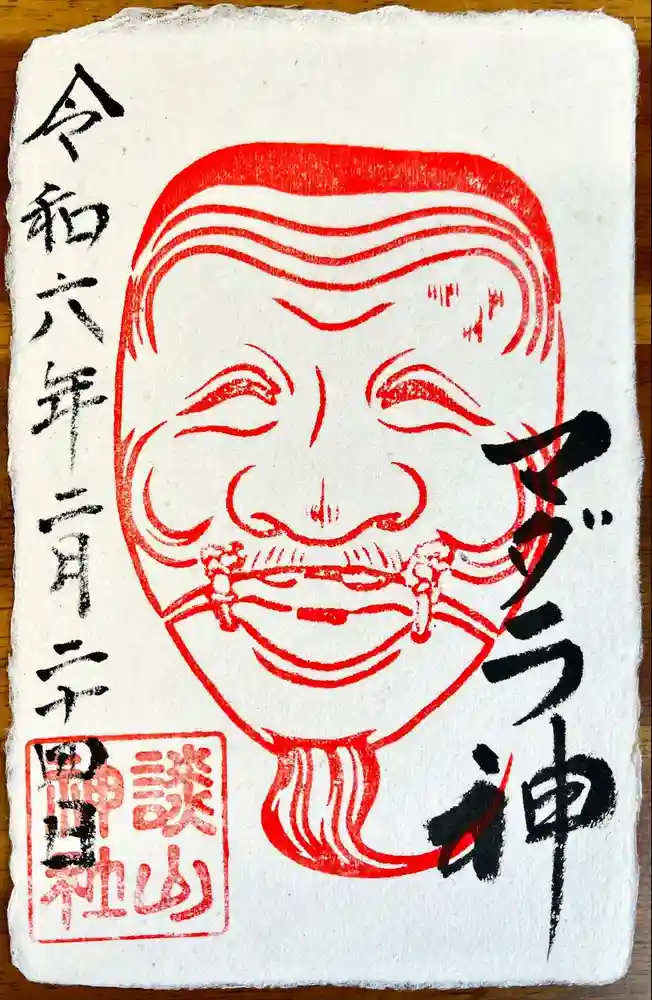 マダラ神
令和六年二月二十四日
談山
神社